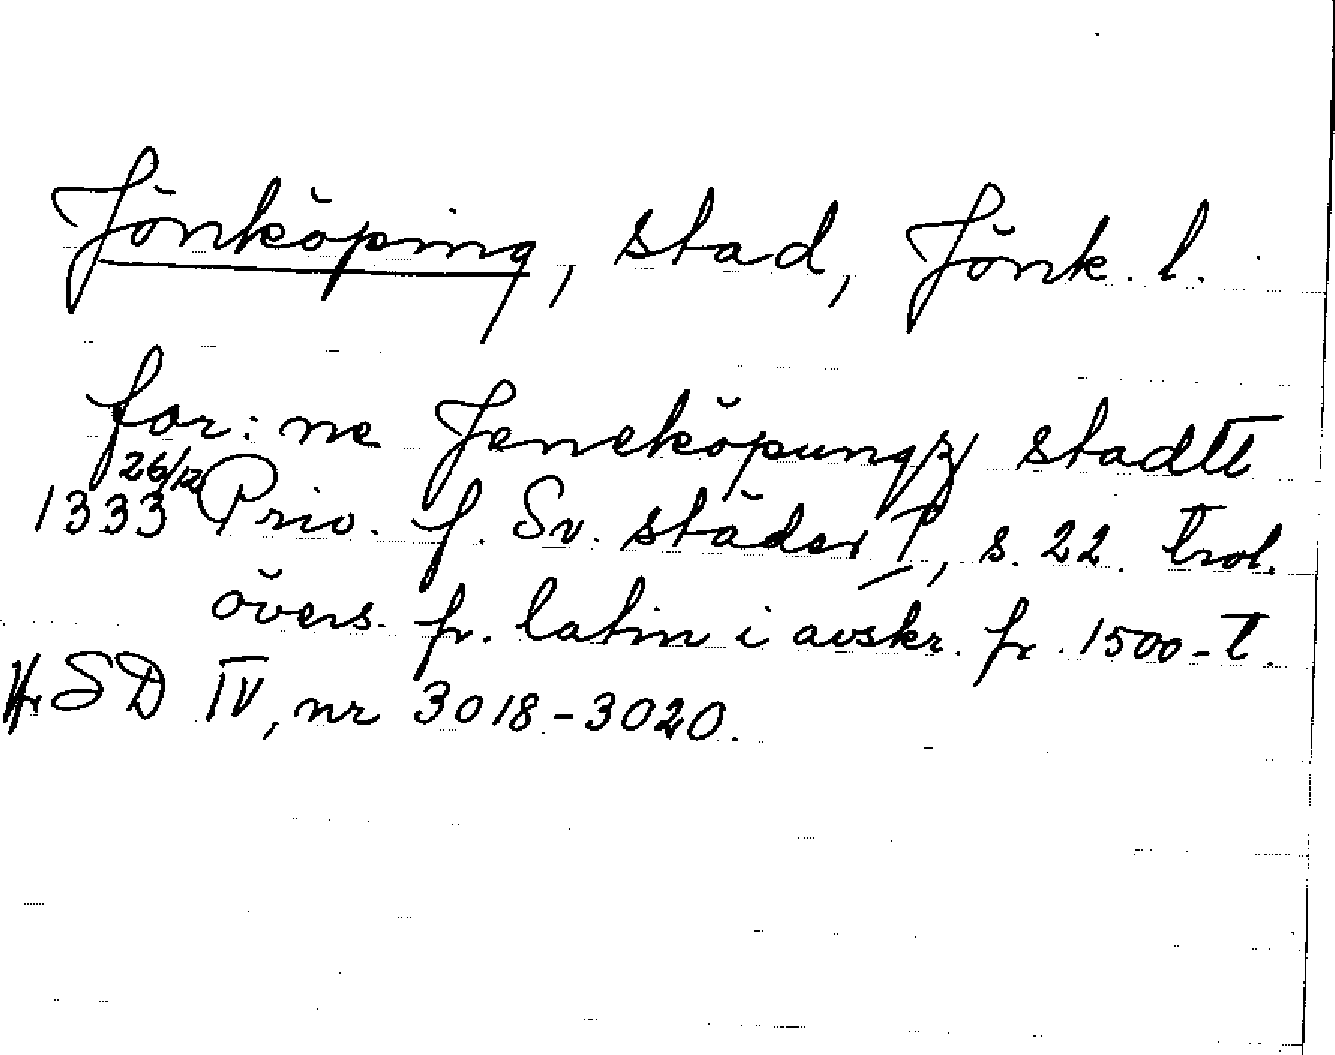 Jönköping, stad, Jönk. l.
for:ne Jeneköpungz stadtt
26/12
1333 Priv. f. Sv. städer I, s. 22. Trol.
övers. fr. latin i avskr. fr. 1500-t.
Hr SD IV, nr 3018-3020.